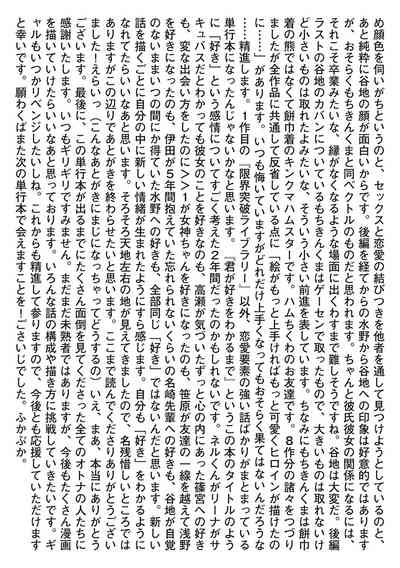 め顔色を伺いがちというのと、セックスと恋愛の結びつきを他者を通して見つけようとしているのと、
あと純粋に谷地の顔が面白いからです。後編を経てからの水野から谷地への印象は好意的ではあります
が、おそらくもちきんくまと同ベクトルのものだと思われます。ちゃんと彼氏彼女の関係になるには、
それこそ卒業みたいな、縁がなくなるような場面に出くわすまで難しそうですね。谷地は大変だ。後編
ラストの谷地のカバンについているもちきんくまはゲーセンで取ったもので、大きいものは取れないけ
ど小さいものは取れたよみたいな、そういう小さい前進を表しています。ちなみにもちきんくまは餅巾
着の熊ではなくて餅巾着のキンクマハムスターです。ハムちくわのお友達です。8作分の諸々をつづり
ましたが全作品に共通して反省している点に「絵がもっと上手ければもっと可愛くヒロインが描けたの
に……」があります。いつも悔いていますがどれだけ上手くなってもおそらく果てはないんだろうな
……精進します。1作目の『限界突破ライブラリー』以外、恋愛要素の強い話ばかりがまとまっている
単行本になったんじゃないかなと思います。『君が好きをわかるまで』というこの本のタイトルのよう
に「好き」という感情についてすごく考えた2年間だったのかもしれないです。ネルくんがリーナがサ
キュバスだとわかっても彼女のことを好きなのも、高瀬が気づいたずっと心の内にあった篠宮への好き
も、変な出会い方をしたのに>>1が女神ちゃんを好きになったのも、笹原が友達の一線を越えて浅野
を好きになったのも、伊田が5年間抱えていた忘れられないくらいの名崎先輩への好きも、谷地が自覚
のないままいつの間にか得ていた水野への好きも、全部同じ「好き」ではないんだと思います。新しい
話を描くごとに自分の中に新しい情緒が生まれたようにすら感じます。自分も「好き」をわかるように
なれてたらいいなあと思います。そろそろ天地左右の地が見えてきましたので、名残惜しいところでは
ありますがこの辺りであとがきを終わらせたいと思います。ここまで読んでくださりありがとうござい
ました!えらいっ(こんなあとがきにまじになっちゃってどうするの)いえ、まあ、本当にありがとう
ございます。最後に、この単行本が出るまでにたくさん面倒を見てくださった全てのオトナの人たちに
感謝いたします。いつもギリギリですみません。まだまだ未熟者ではありますが、今後もたくさん漫画
を描いていけたらいいなあと思っております。いろんな話の構成や描き方に挑戦していきたいです。ギ
ャルもいつかリベンジしたいしね。これからも精進して参りますので、今後とも応援していただけます
と幸いです。願わくばまた次の単行本で会えますことを!ごさいじでした。ふかぶか。